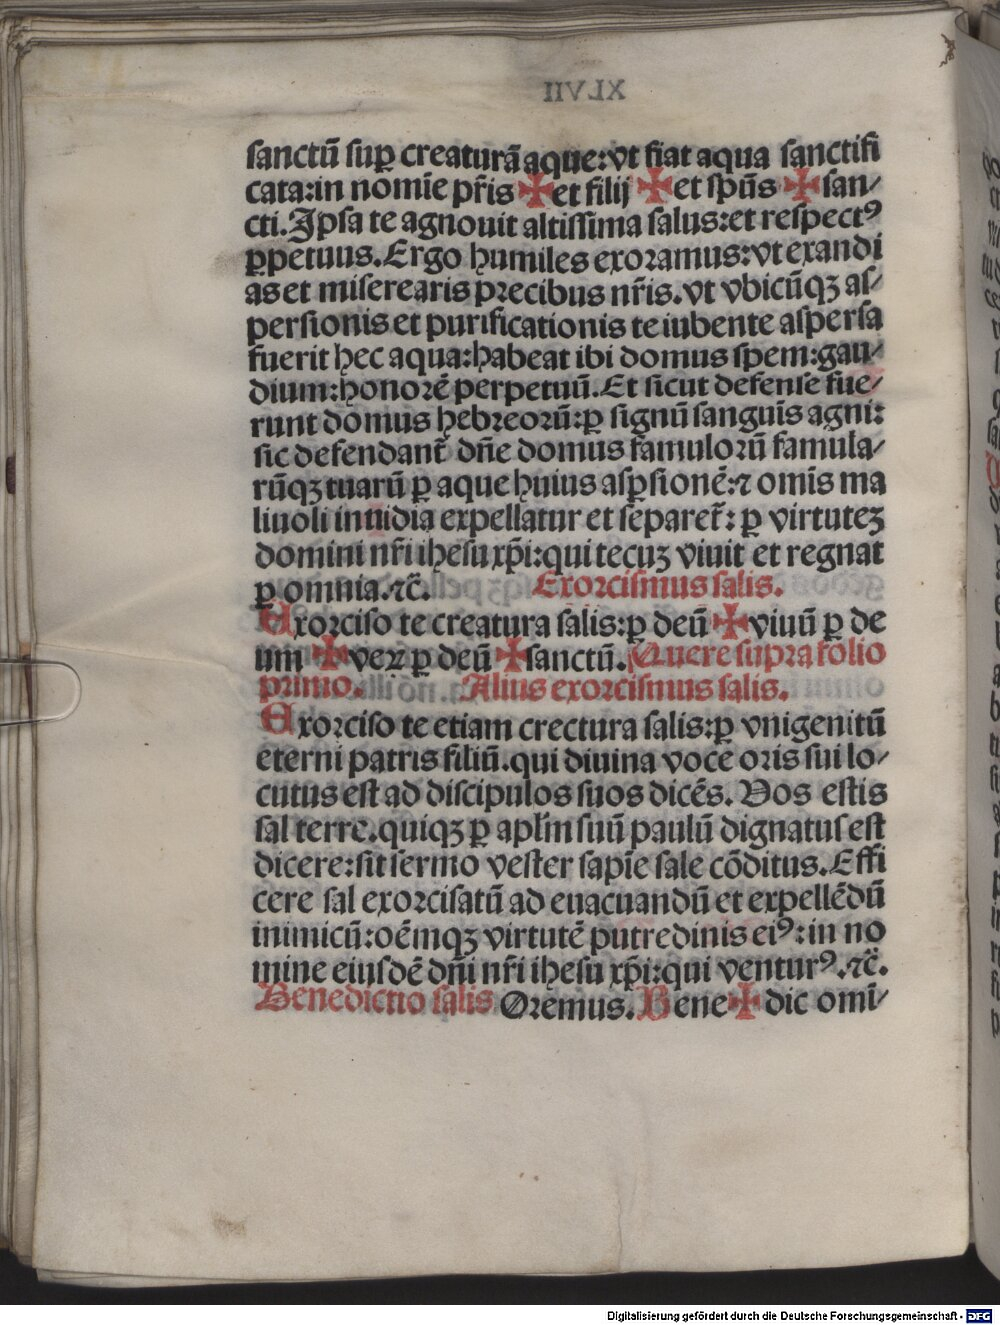 sanctū sup̱ creaturā aque:vt fiat aqua sanctifi
cata:in nomīe pr̄is ✠ et filij ✠ et sp̄us ✠ san/
cti. Ipsa te agnouit altissima salus:et respectꝰ
ꝑpetuus. Ergo humiles exoramus:vt exaudi
as et miserearis precibus nr̄is. vt vbicūqꝫ as/
persionis et purificationis te iubente aspersa
fuerit hec aqua:habeat ibi domus spem:gau/
dium:honorē perpetuū. Et sicut defense fue/
runt domus hebreorū:ꝑ signū sanguīs agni:
sic defendant̄ dn̄e domus famulorū famula/
rūqꝫ tuarū ꝑ aque huius asꝑsionē:⁊ omīs ma
liuoli inuidia expellatur et separet̄: ꝑ virtuteꝫ
domini nr̄i ihesu xp̄i:qui tecuꝫ viuit et regnat
ꝑ omnia.⁊c̄. Exorcismus salis.
Exorciso te creatura salis:ꝑ deū ✠ viuū ꝑ de
um ✠ veꝝ ꝑ deū ✠ sanctū. Quere supra folio
primo. Alius exorcismus salis.
Exorciso te etiam crectura salis:ꝑ vnigenitū
eterni patris filiū.qui diuina voce oris sui lo/
cutus est ad discipulos suos dicēs. Vos estis
sal terre.quiqꝫ ꝑ apl̄m suū paulū dignatus est
dicere:sit sermo vester sapīe sale cōditus. Effi
cere sal exorcisatū ad euacuandū et expellēdū
inimicū:oēmqꝫ virtutē putredinis eiꝰ:in no
mine eiusdē dn̄i nr̄i ihesu xp̄i:qui venturꝰ.⁊c̄.
Benedictio salis Oremus. Bene ✠ dic omī/
XLVII
Digitalisierung gefördert durch die Deutsche Forschungsgemeinschaft - DFG